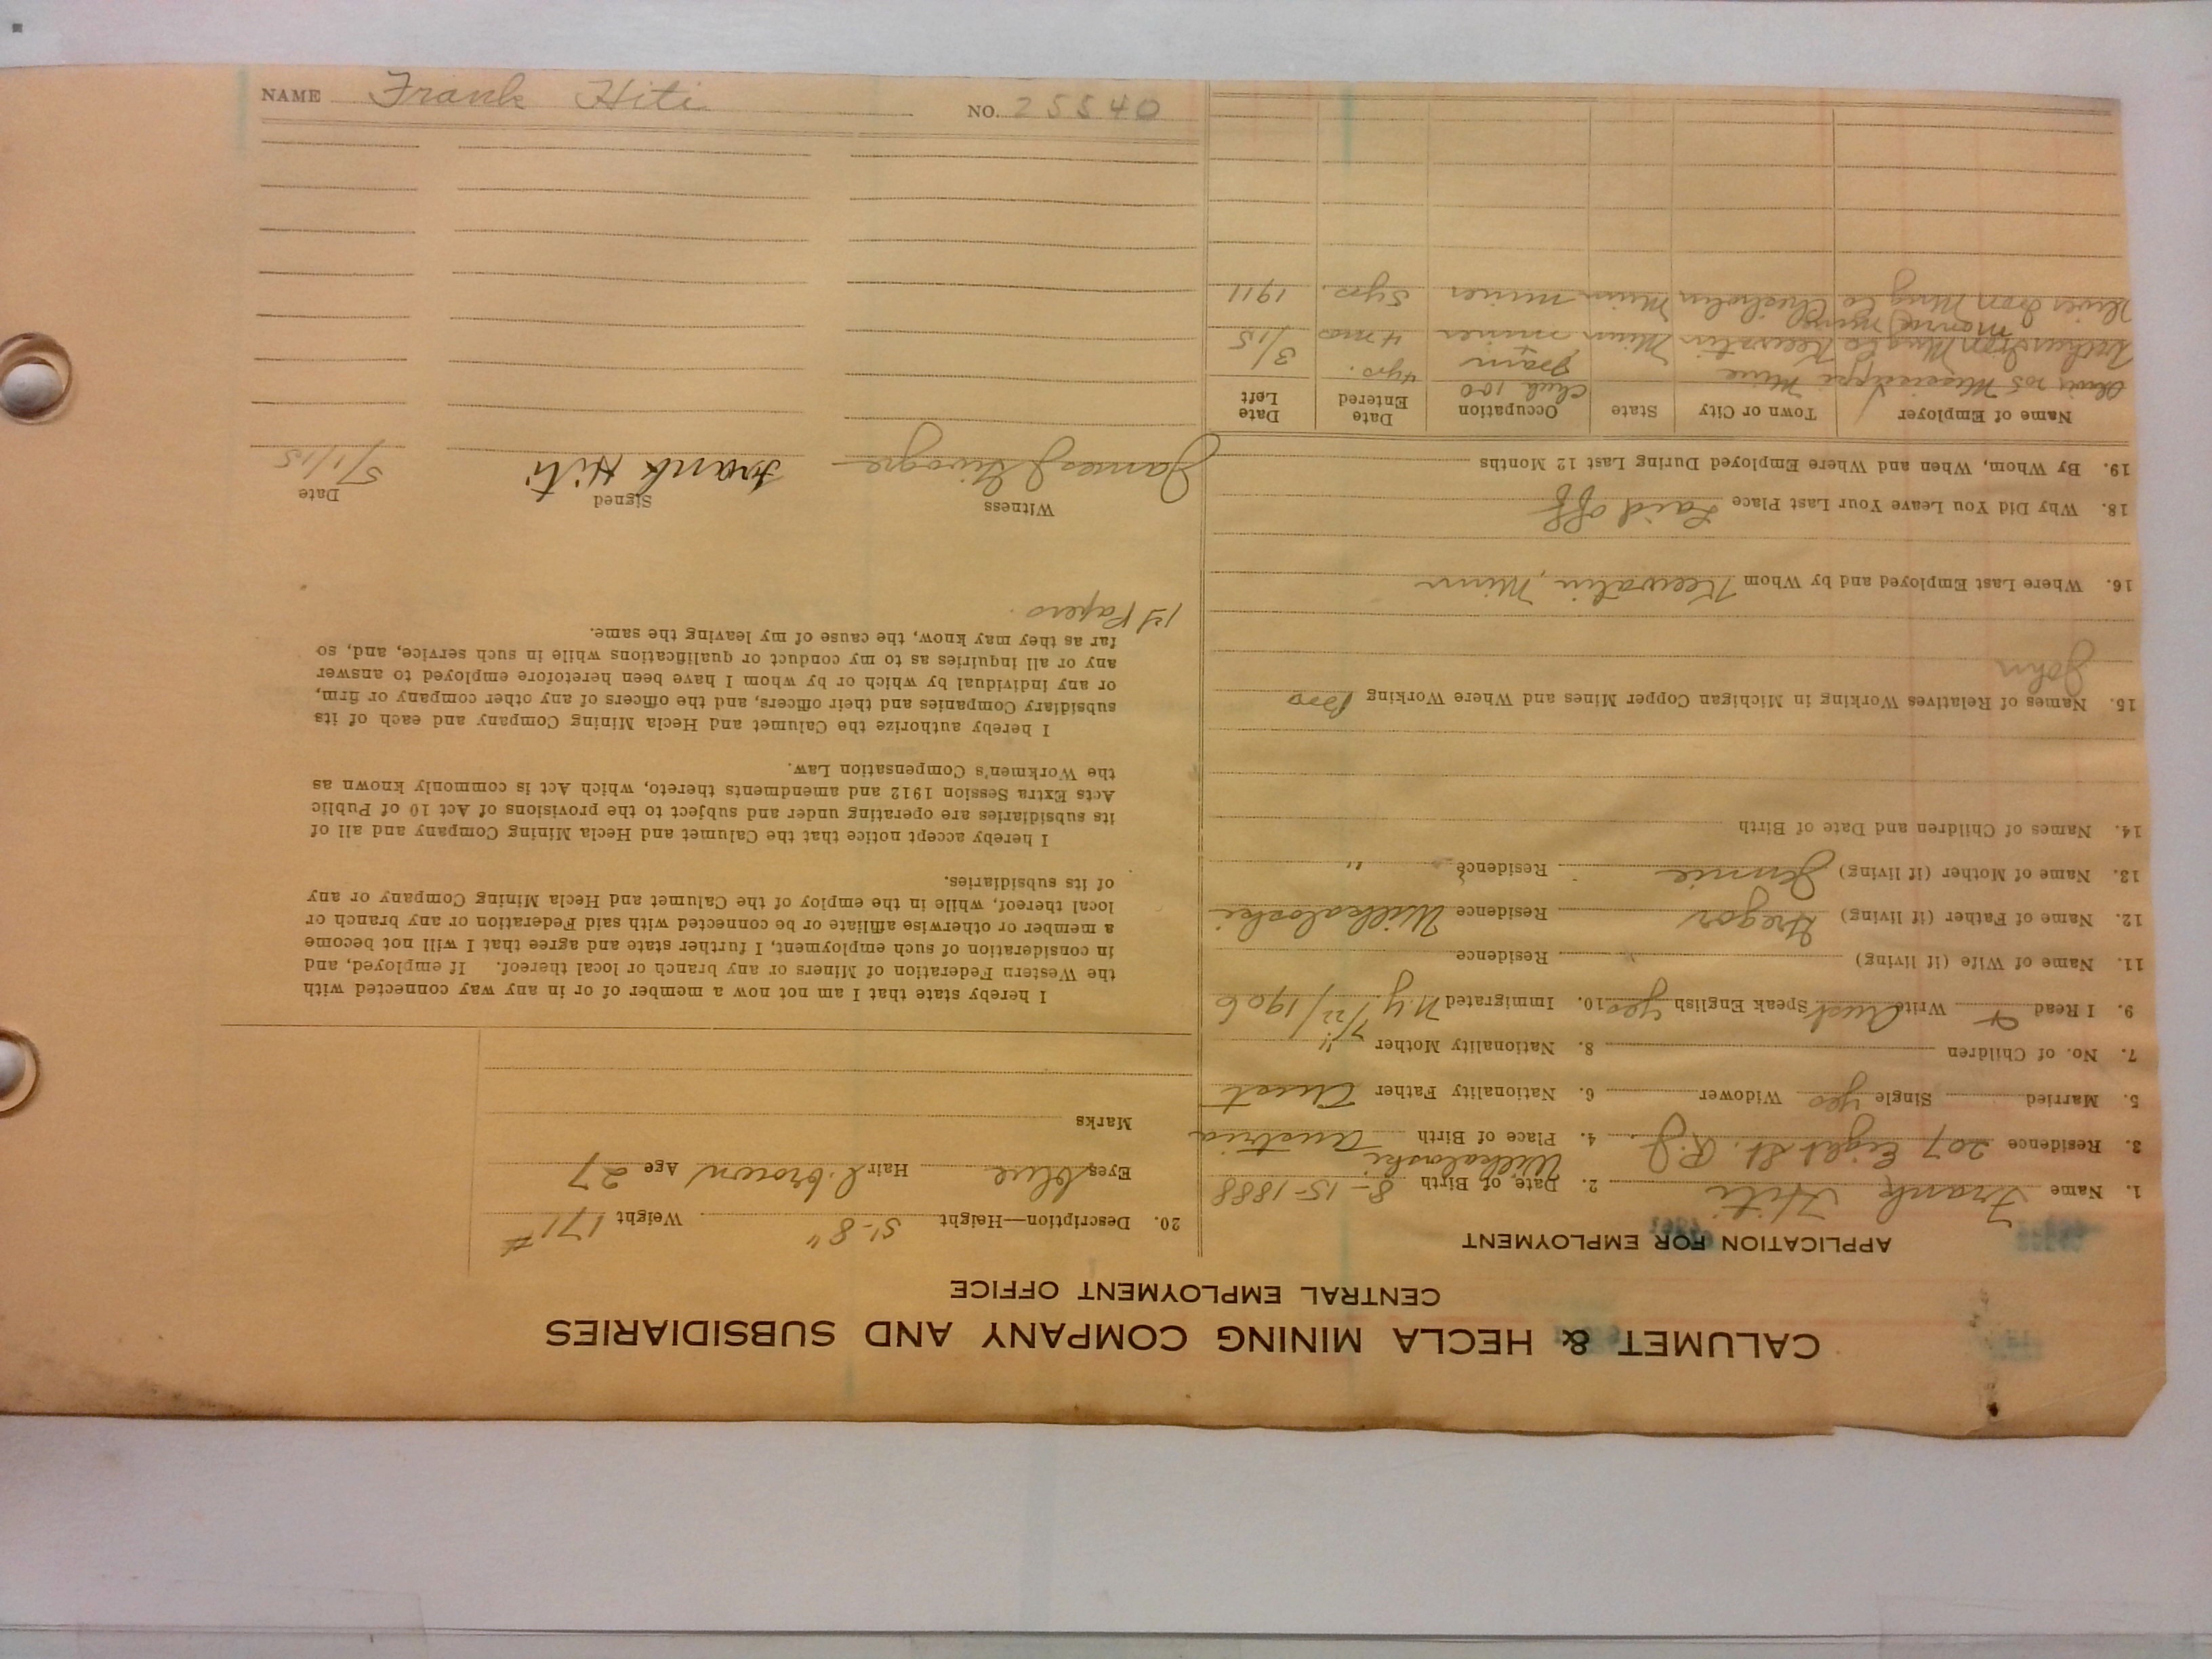 CALUMET & HECLA MINING COMPANY AND SUBSIDIARIES
CENTRAL EMPLOYMENT OFFICE
APPLICATION FOR EMPLOYMENT
1. Name Frank Hiti 2. Date of Birth 8-15-1888
3. Residence 207 Eight St. R.J. 4. Place of Birth Austria
5. Married Single yes Widower 6. Nationality Father Aust
7. No. of Children 8. Nationality Mother "
9. I Read & Write Aust Speak English yes 10. Immigrated N.Y. 7/22/1906
11. Name of Wife (if living) Residence
12. Name of Father (if living) Gregor Residence
13. Name of Mother (if living) Jennie Residence "
14. Names of Children and Date of Birth
15. Names of Relatives Working in Michigan Copper Mines and Where Working Bro
John
16. Where Last Employed and by Whom Keewatin, Minn
18. Why Did You Leave Your Last Place Laid off
19. By Whom, When and Where Employed During Last 12 Months
Name of Employer Town or City State Occupation Date Entered Date Left
Mississippi Mine 100 4 yrs.
Iron Mng Co Keewatin Minn miner 4 mos 3/15
Iron Mng Co Chisholm Minn miner 5 yrs. 1911
20. Description—Height 5'-8" Weight 171#
Eyes blue Hair l. brown Age 27
Marks
I hereby state that I am not now a member of or in any way connected with
the Western Federation of Miners or any branch or local thereof. If employed, and
in consideration of such employment, I further state and agree that I will not become
a member or otherwise affiliate or be connected with said Federation or any branch or
local thereof, while in the employ of the Calumet and Hecla Mining Company or any
of its subsidiaries.
I hereby accept notice that the Calumet and Hecla Mining Company and all of
its subsidiaries are operating under and subject to the provisions of Act 10 of Public
Acts Extra Session 1912 and amendments thereto, which Act is commonly known as
the Workmen's Compensation Law.
I hereby authorize the Calumet and Hecla Mining Company and each of its
subsidiary Companies and their officers, and the officers of any other company or firm,
or any individual by which or by whom I have been heretofore employed to answer
any or all inquiries as to my conduct or qualifications while in such service, and, so
far as they may know, the cause of my leaving the same.
1st Papers.
Witness Signed Date
James J Frank Hiti 5/1/15
NAME Frank Hiti NO. 25540